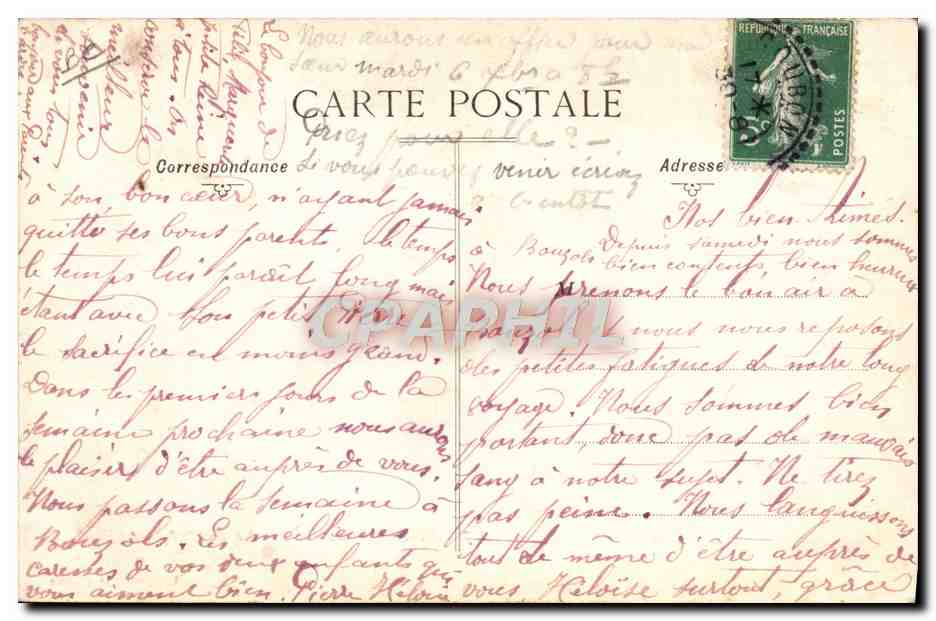 Nous aurons un office pour ma
sœur mardi 6 8bre a 8h
CARTE POSTALE
Priez pour elle ? —
Si vous pouvez venir écrivez
a bientôt
Correspondance
Adresse
RÉPUBLIQUE FRANÇAISE
POSTES
Nos bien Aimés.
Depuis samedi nous sommes
à Bouzols bien contents, bien heureux
Nous prenons le bon air a
Bouzols et nous nous reposons
des petites fatigues de notre long
voyage. Nous sommes bien
portant, donc pas de mauvais
sang à notre sujet. Ne tirez
pas peine. Nous languissons
tout de même d'être auprès de
vous, Héloïse surtout, grâce
à son bon cœur, n'ayant jamais
quitté ses bons parents le temps
le temps lui paraît long mais
étant avec son petit Pierre
le sacrifice en moins grand.
Dans les premiers jours de la
semaine prochaine nous aurons
le plaisir d'être auprès de vous.
Nous passons la semaine à
Bouzols. Les meilleures
caresses de vos deux enfants qui
vous aiment bien. Pierre Héloïse
Le bonjour de
petite Reine
à tous. On
conserve le
meilleur
souvenir
de vous tous
CPAPHIL